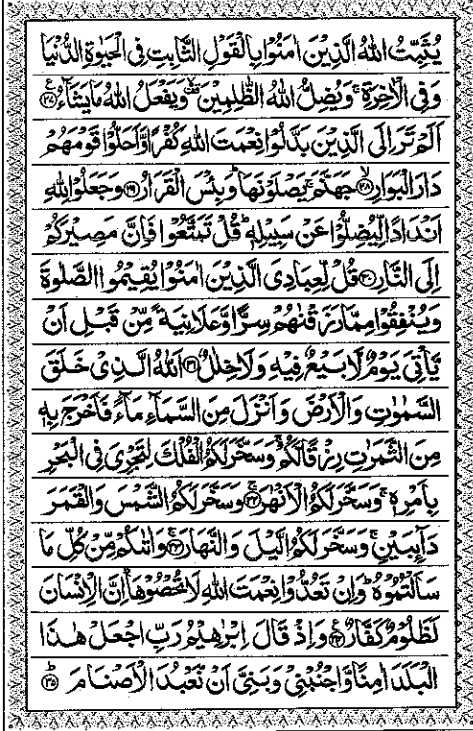 يُثَبِّتُ اللّٰهُ الَّذِيْنَ اٰمَنُوْا بِالْقَوْلِ الثَّابِتِ فِى الْحَيٰوةِ الدُّنْيَا
وَفِى الْاٰخِرَةِ ۚ وَيُضِلُّ اللّٰهُ الظّٰلِمِيْنَ ۙ وَيَفْعَلُ اللّٰهُ مَا يَشَآءُ ﴿۲۷﴾ ع
اَلَمْ تَرَ اِلَى الَّذِيْنَ بَدَّلُوْا نِعْمَتَ اللّٰهِ كُفْرًا وَّاَحَلُّوْا قَوْمَهُمْ
دَارَ الْبَوَارِ ﴿۲۸﴾ۙ جَهَنَّمَ ۚ يَصْلَوْنَهَا ؕ وَبِئْسَ الْقَرَارُ ﴿۲۹﴾ وَجَعَلُوْا لِلّٰهِ
اَنْدَادًا لِّيُضِلُّوْا عَنْ سَبِيْلِهٖ ؕ قُلْ تَمَتَّعُوْا فَاِنَّ مَصِيْرَكُمْ
اِلَى النَّارِ ﴿۳۰﴾ قُلْ لِّعِبَادِىَ الَّذِيْنَ اٰمَنُوْا يُقِيْمُوا الصَّلٰوةَ
وَيُنْفِقُوْا مِمَّا رَزَقْنٰهُمْ سِرًّا وَّعَلَانِيَةً مِّنْ قَبْلِ اَنْ
يَّاْتِىَ يَوْمٌ لَّا بَيْعٌ فِيْهِ وَلَا خِلٰلٌ ﴿۳۱﴾ اَللّٰهُ الَّذِىْ خَلَقَ
السَّمٰوٰتِ وَالْاَرْضَ وَاَنْزَلَ مِنَ السَّمَآءِ مَآءً فَاَخْرَجَ بِهٖ
مِنَ الثَّمَرٰتِ رِزْقًا لَّكُمْ ۚ وَسَخَّرَ لَكُمُ الْفُلْكَ لِتَجْرِىَ فِى الْبَحْرِ
بِاَمْرِهٖ ۚ وَسَخَّرَ لَكُمُ الْاَنْهٰرَ ﴿۳۲﴾ۚ وَسَخَّرَ لَكُمُ الشَّمْسَ وَالْقَمَرَ
دَآئِبَيْنِ ۚ وَسَخَّرَ لَكُمُ الَّيْلَ وَالنَّهَارَ ﴿۳۳﴾ۚ وَاٰتٰىكُمْ مِّنْ كُلِّ مَا
سَاَلْتُمُوْهُ ؕ وَاِنْ تَعُدُّوْا نِعْمَتَ اللّٰهِ لَا تُحْصُوْهَا ؕ اِنَّ الْاِنْسَانَ
لَظَلُوْمٌ كَفَّارٌ ﴿۳۴﴾ ع وَاِذْ قَالَ اِبْرٰهِيْمُ رَبِّ اجْعَلْ هٰذَا
الْبَلَدَ اٰمِنًا وَّاجْنُبْنِىْ وَبَنِىَّ اَنْ نَّعْبُدَ الْاَصْنَامَ ﴿۳۵﴾ؕ